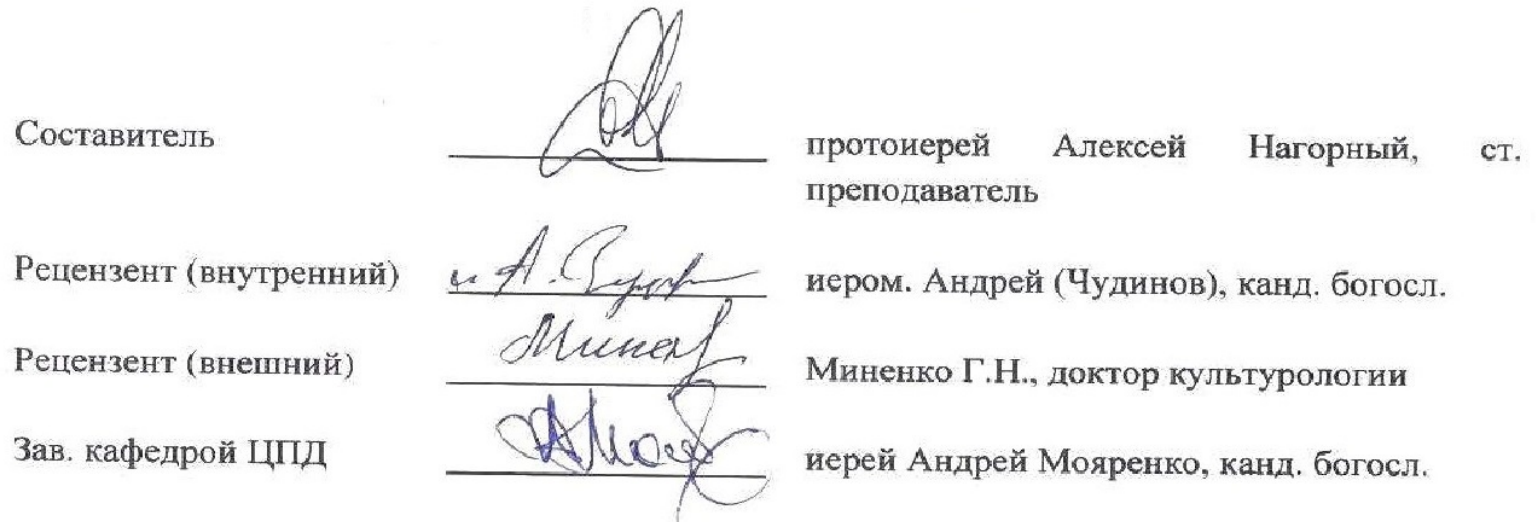 Составитель протоиерей Алексей Нагорный, ст.
преподаватель
Рецензент (внутренний) иером. Андрей (Чудинов), канд. богосл.
Рецензент (внешний) Миненко Г.Н., доктор культурологии
Зав. кафедрой ЦПД иерей Андрей Мояренко, канд. богосл.